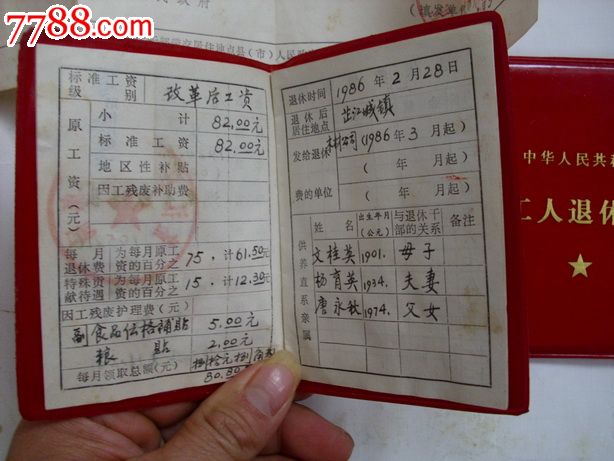 7788.com
民政府
(填发单位)
居住地点县(市)人民政
标准工资级别 改革后工资
原工资(元)
小计 82.00元
标准工资 82.00元
地区性补贴
因工残废补助费
每月退休费 为每月原工资的百分之 75, 计61.50元
特殊贡献待遇 为每月原工资的百分之 15, 计12.30元
因工残废护理费(元)
副食品价格补贴 5.00元
粮贴 2.00元
每月领取总额(元) 捌拾元捌角
80.80
退休时间 1986年2月28日
退休后居住地点 芷江城镇
发给退休费的单位 (1986年3月起)
(年月起)
(年月起)
供养直系亲属
姓名 出生年月(公元) 与退休干部的关系 备注
文桂英 1901. 母子
杨育英 1934. 夫妻
唐永秋 1974. 父女
中华人民共和
工人退休